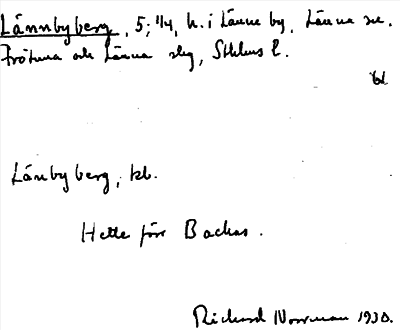 Lännbyberg, 5; 1/4, h. i Länna by, Länna sn.
Frötuna och Länna slg, Sthlms l.
Lännbyberg, kb.
Hette förr Backas.
Richard Norrman 1930.